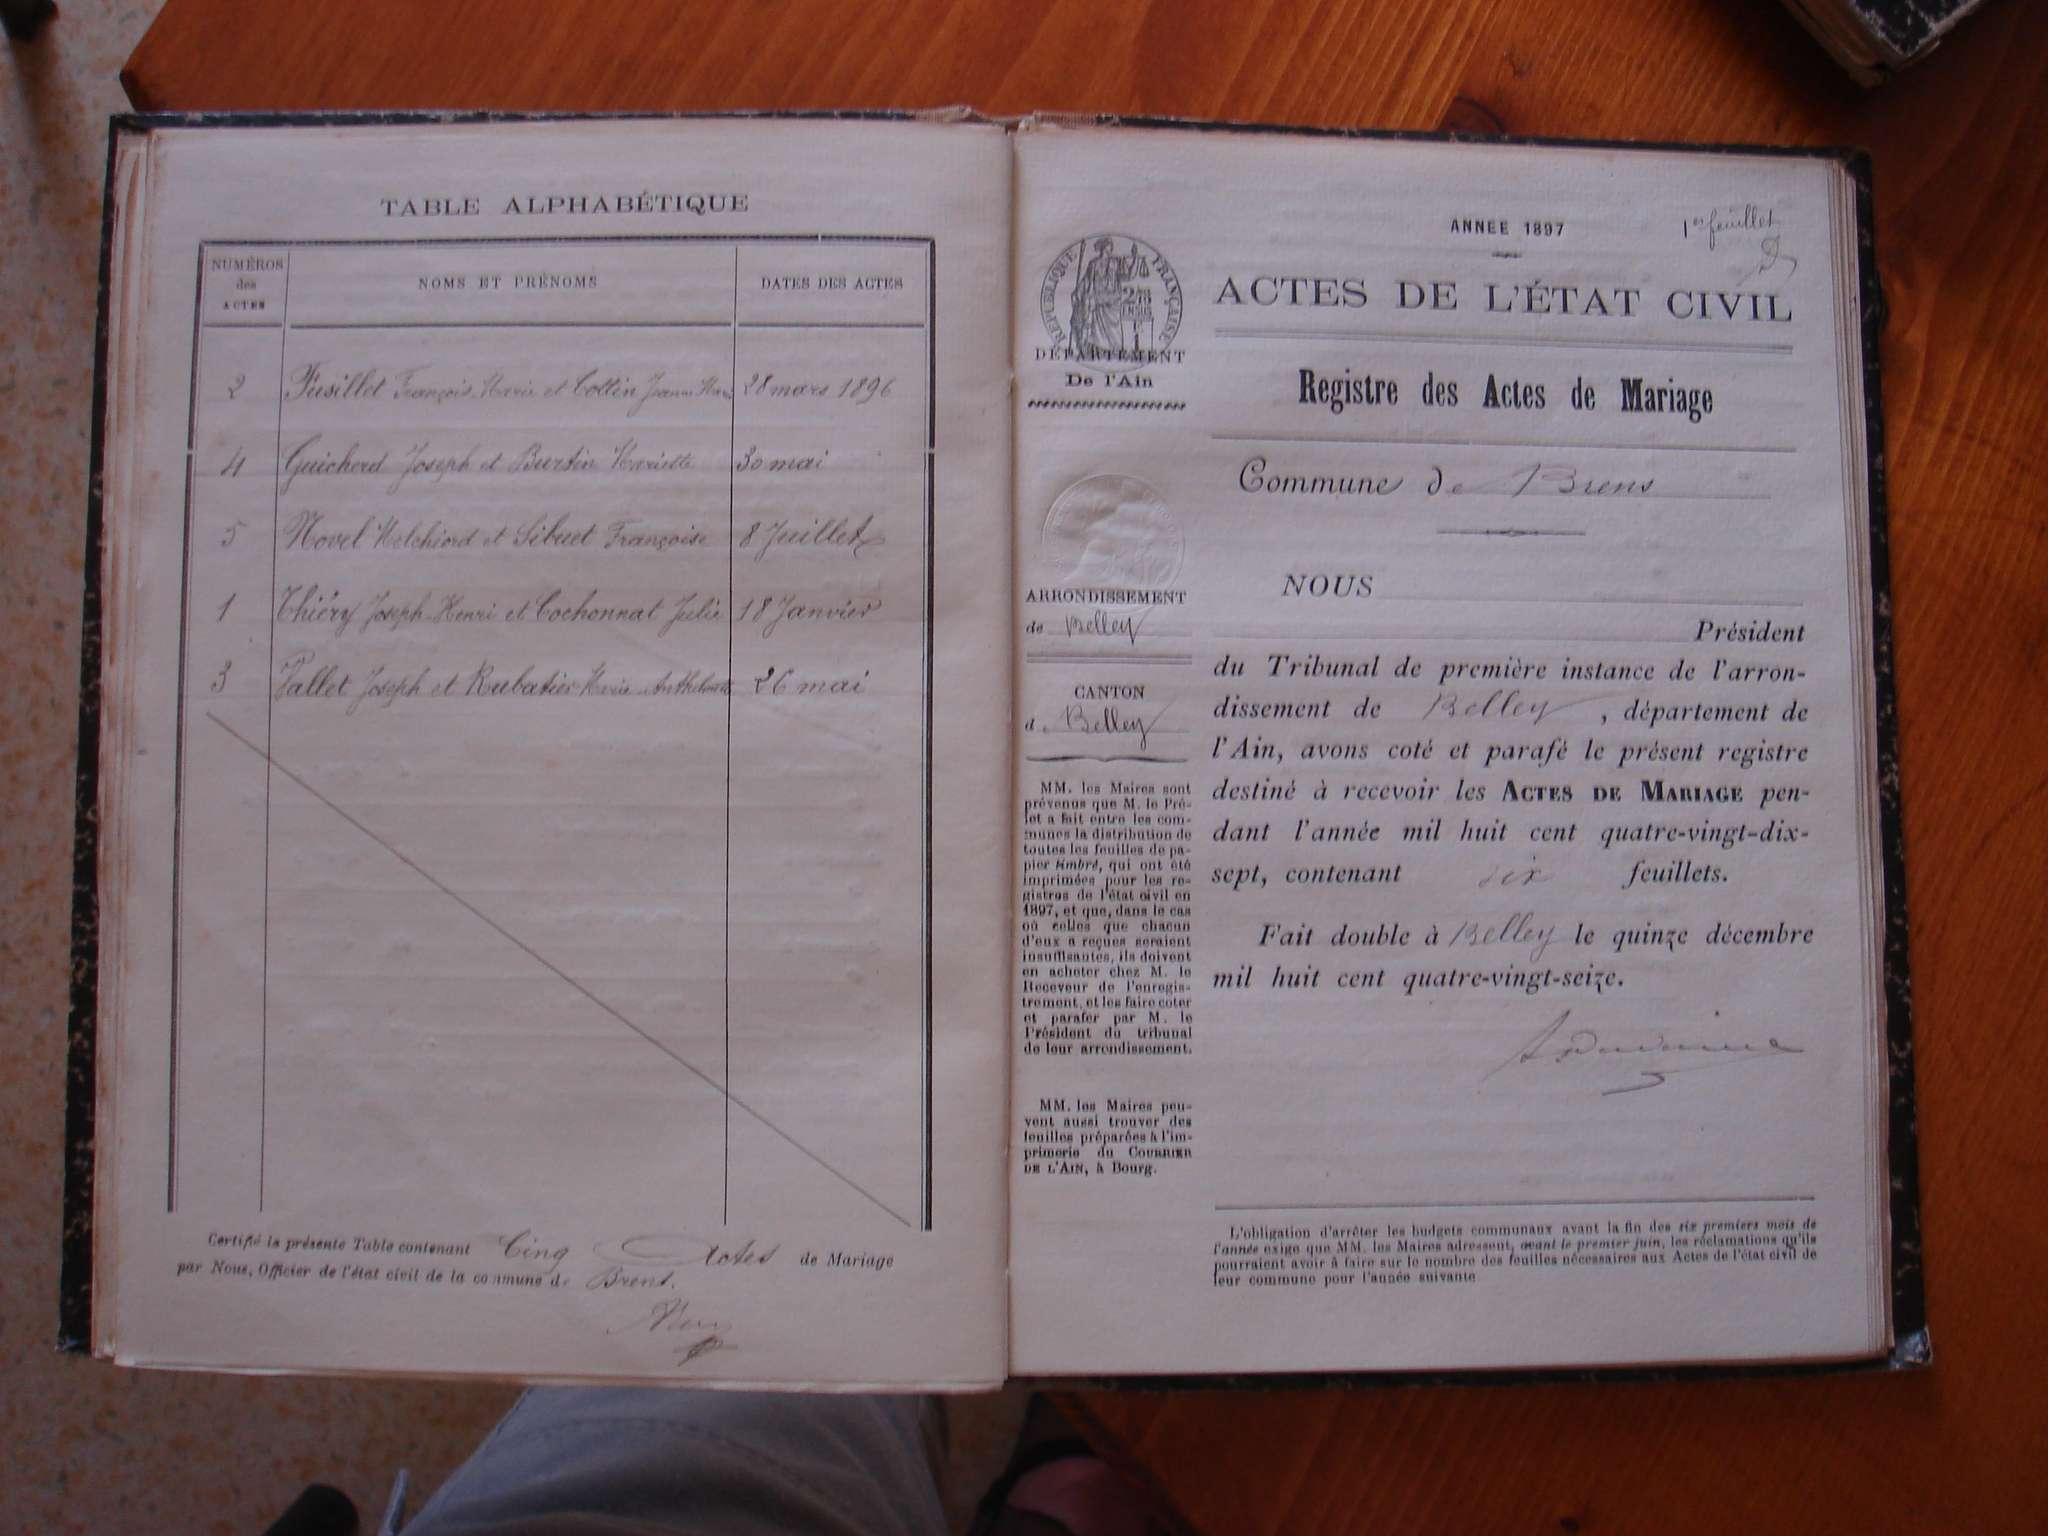 TABLE ALPHABÉTIQUE
NUMÉROS des ACTES
NOMS ET PRÉNOMS
DATES DES ACTES
2 Fusillet François Marie et Collin Jeanne Marie 28 mars 1896
4 Guicherd Joseph et Burtin Mariette 30 mai
5 Novel Melchiord et Sibuet Françoise 8 Juillet
1 Thiéry Joseph-Henri et Cochonnat Julie 18 Janvier
3 Vallet Joseph et Rubatier Marie Anthelmette 26 mai
Certifié la présente Table contenant Cinq Actes de Mariage
par Nous, Officier de l'état civil de la commune de Brens.
ANNÉE 1897
1er feuillet
RÉPUBLIQUE FRANÇAISE
DÉPARTEMENT
De l'Ain
ARRONDISSEMENT
de Belley
CANTON
d Belley
MM. les Maires sont
prévenus que M. le Pré-
fet a fait entre les com-
munes la distribution de
toutes les feuilles de pa-
pier timbré, qui ont été
imprimées pour les re-
gistres de l'état civil en
1897, et que, dans le cas
où celles que chacun
d'eux a reçues seraient
insuffisantes, ils doivent
en acheter chez M. le
Receveur de l'enregis-
trement, et les faire coter
et parafer par M. le
Président du tribunal
de leur arrondissement.
MM. les Maires peu-
vent aussi trouver des
feuilles préparées à l'im-
primerie du COURRIER
DE L'AIN, à Bourg.
ACTES DE L'ÉTAT CIVIL
Registre des Actes de Mariage
Commune de Brens
NOUS
Président
du Tribunal de première instance de l'arron-
dissement de Belley, département de
l'Ain, avons coté et parafé le présent registre
destiné à recevoir les ACTES DE MARIAGE pen-
dant l'année mil huit cent quatre-vingt-dix-
sept, contenant six feuillets.
Fait double à Belley le quinze décembre
mil huit cent quatre-vingt-seize.
L'obligation d'arrêter les budgets communaux avant la fin des six premiers mois de
l'année exige que MM. les Maires adressent, avant le premier juin, les réclamations qu'ils
pourraient avoir à faire sur le nombre des feuilles nécessaires aux Actes de l'état civil de
leur commune pour l'année suivante